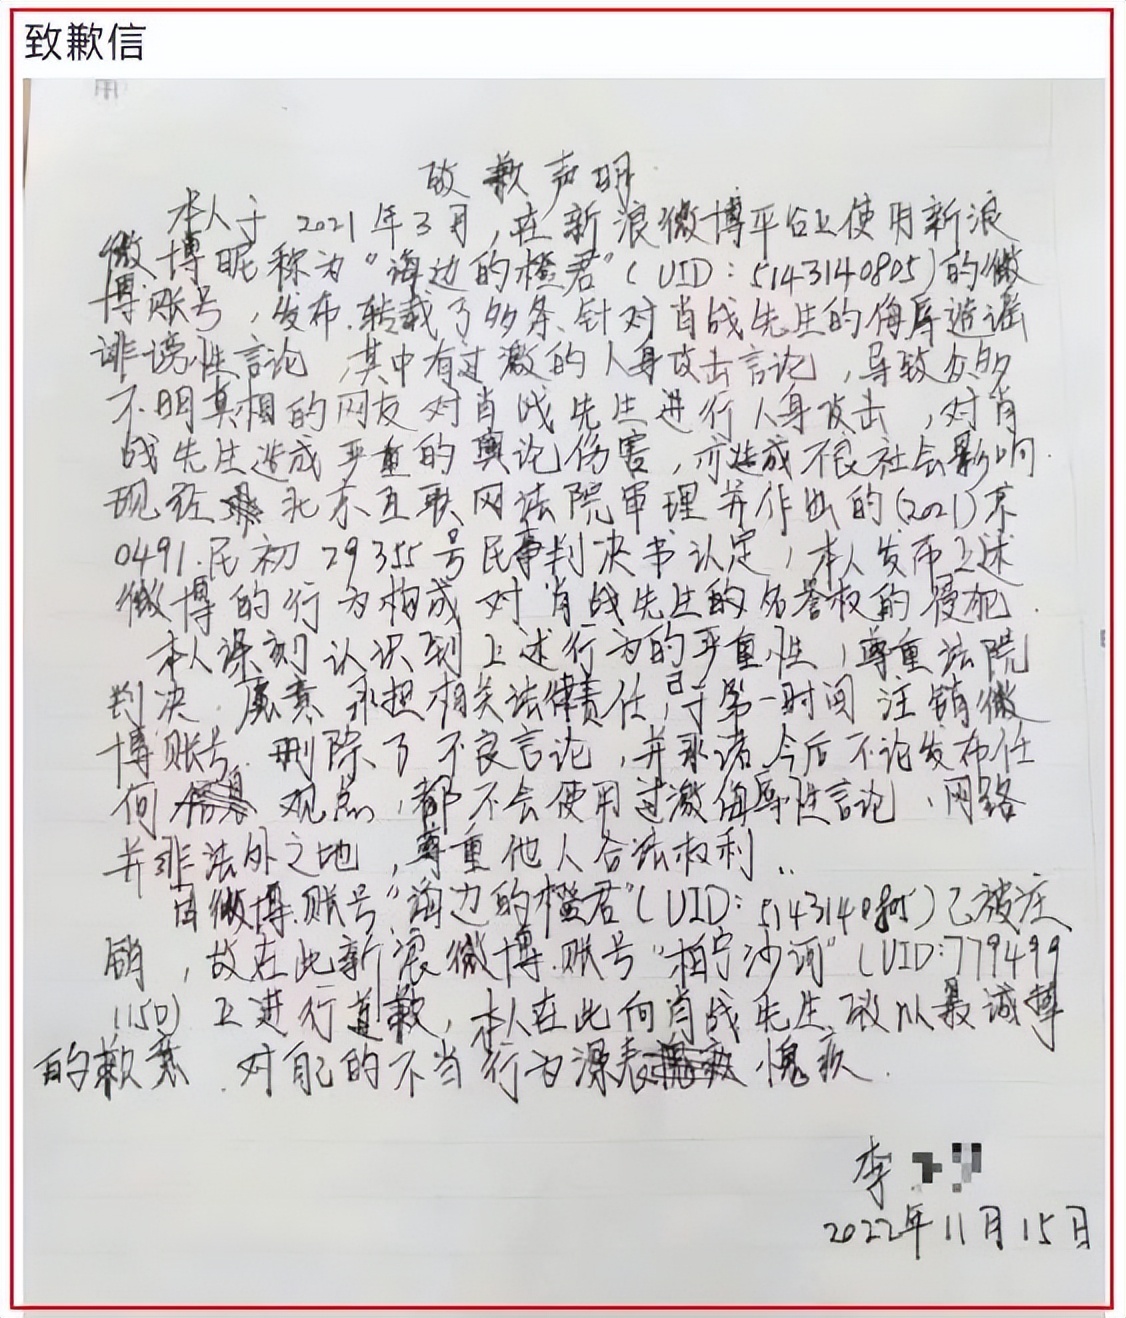 致歉信
致歉声明
本人于2021年3月,在新浪微博平台上使用新浪
微博昵称为“海边的橙君”(UID:5143140805)的微
博账号,发布、转载了多条针对肖战先生的侮辱造谣
诽谤性言论,其中有过激的人身攻击言论,导致众多
不明真相的网友对肖战先生进行人身攻击,对肖
战先生造成严重的舆论伤害,亦造成不良社会影响.
现经北京互联网法院审理并作出的(2021)京
0491民初29355号民事判决书认定,本人发布上述
微博的行为构成对肖战先生的名誉权的侵犯.
本人深刻认识到上述行为的严重性,尊重法院
判决.愿意承担相关法律责任,已于第一时间注销微
博账号.删除了不良言论,并承诺今后不论发布任
何观点,都不会使用过激侮辱性言论、网络
并非法外之地,尊重他人合法权利..
因微博账号“海边的橙君”(UID:5143140805)已被注
销,故在此新浪微博账号“柏宁沙诃”(UID:779499
1150)上进行道歉,本人在此向肖战先生致以最诚挚
的歉意.对自己的不当行为深表愧疚.
李
2022年11月15日